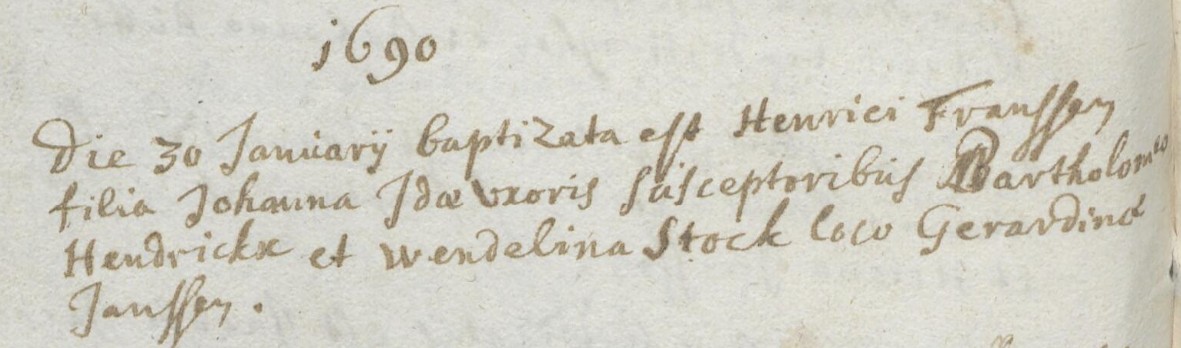 1690
Die 30 Januarÿ baptizata est Henrici Franssen
filia Johanna Idæ Uxoris susceptoribus Bartholomeo
Hendrickx et Wendelina Stock loco Gerardinæ
Janssen.